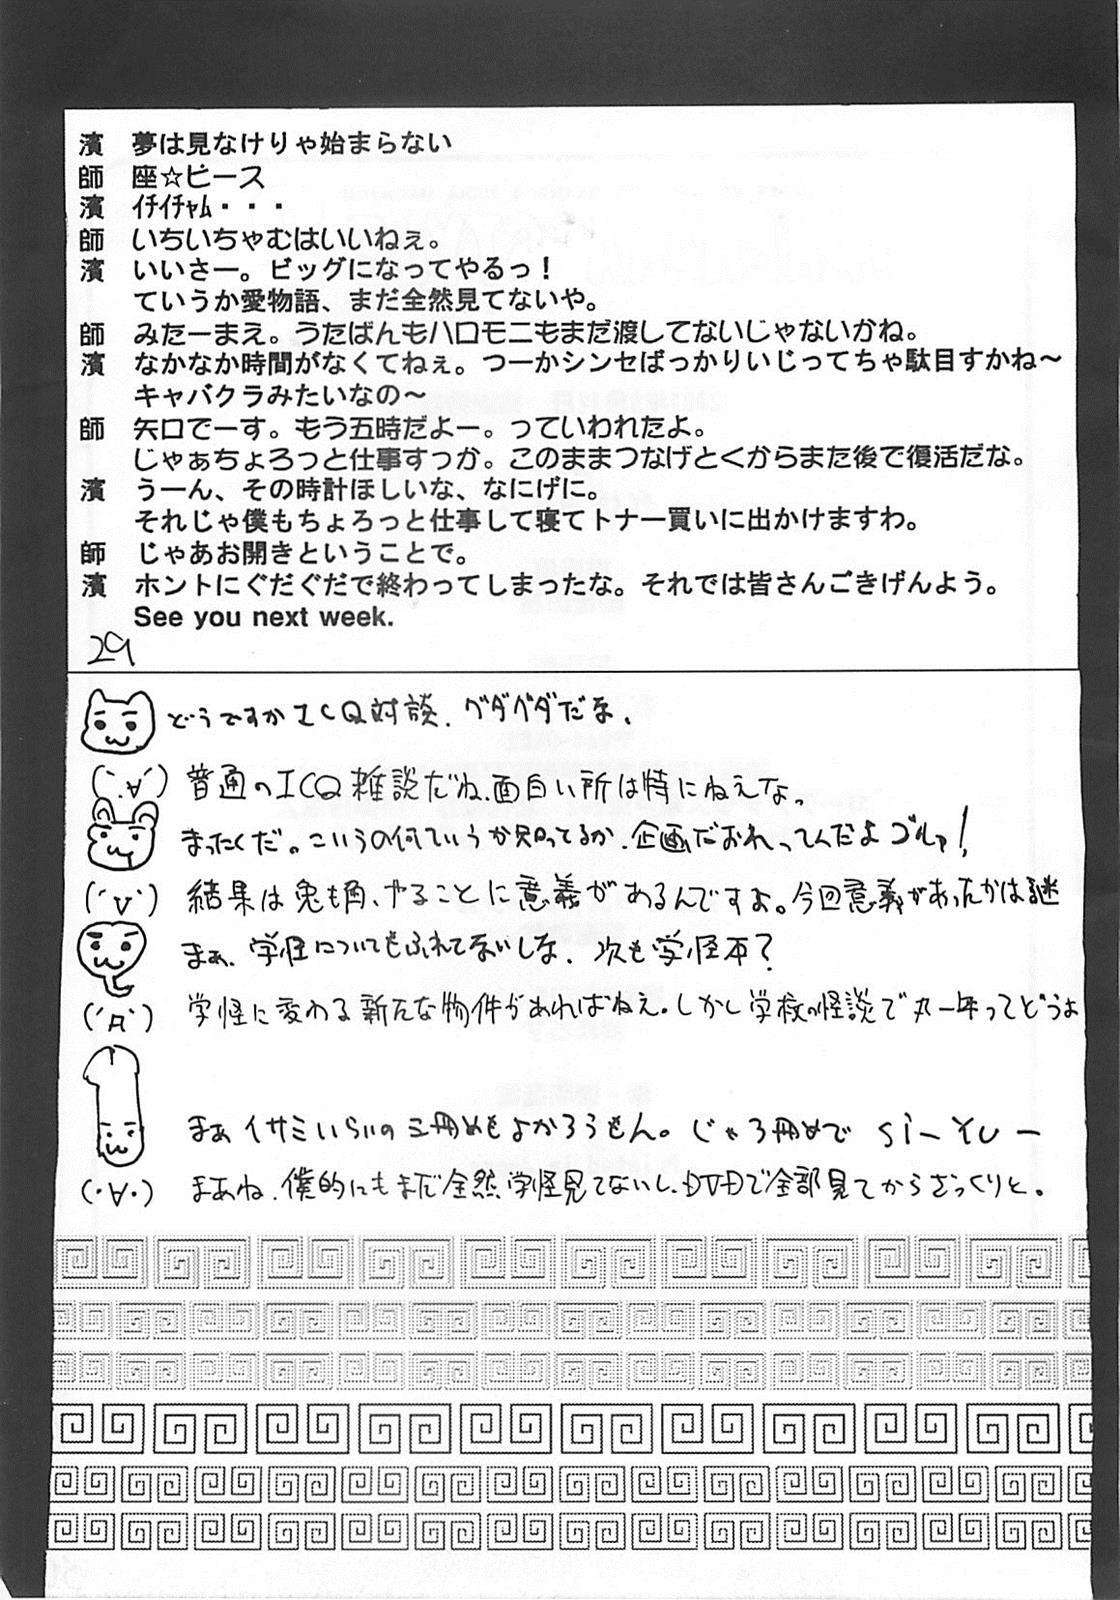 濱　夢は見なけりゃ始まらない
師　座☆ピース
濱　ｲﾁｲﾁｬﾑ・・・
師　いちいちゃむはいいねぇ。
濱　いいさー。ビッグになってやるっ！
ていうか愛物語、まだ全然見てないや。
師　みたーまえ。うたばんもハロモニもまだ渡してないじゃないかね。
濱　なかなか時間がなくてねぇ。つーかシンセばっかりいじってちゃ駄目すかね～
キャバクラみたいなの～
師　矢口でーす。もう五時だよー。っていわれたよ。
じゃぁちょろっと仕事すっか。このままつなげとくからまた後で復活だな。
濱　うーん、その時計ほしいな、なにげに。
それじゃ僕もちょろっと仕事して寝てトナー買いに出かけますわ。
師　じゃあお開きということで。
濱　ホントにぐだぐだで終わってしまったな。それでは皆さんごきげんよう。
See you next week.
29
どうですかICQ対談、グダグダだな、
(´∀`) 普通のICQ雑談だね、面白い所は特にねえな。
まったくだ。こういうの何ていうか知ってるか、企画だおれってんだよゴルァ!
(´V`) 結果は兎も角、やることに意義があるんですよ。今回意義があったかは謎
まぁ、学怪についてもふれてないしな、次も学怪本?
(´Д`) 学怪に変わる新たな物件があればねえ。しかし学校の怪談で丸一年ってどうよ
まぁイサミいらいの三冊めもよかろうもん。じゃ3冊めで Si-YU-
(・∀・) まあね、僕的にもまだ全然学怪見てないし、DVDで全部見てからざっくりと。